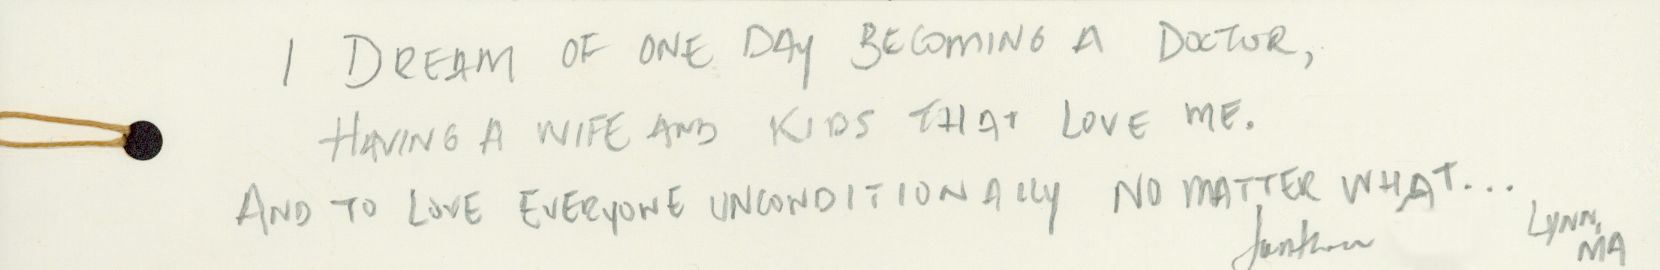 I DREAM OF ONE DAY BECOMING A DOCTOR,
HAVING A WIFE AND KIDS THAT LOVE ME.
AND TO LOVE EVERYONE UNCONDITIONALLY NO MATTER WHAT...
LYNN,
MA